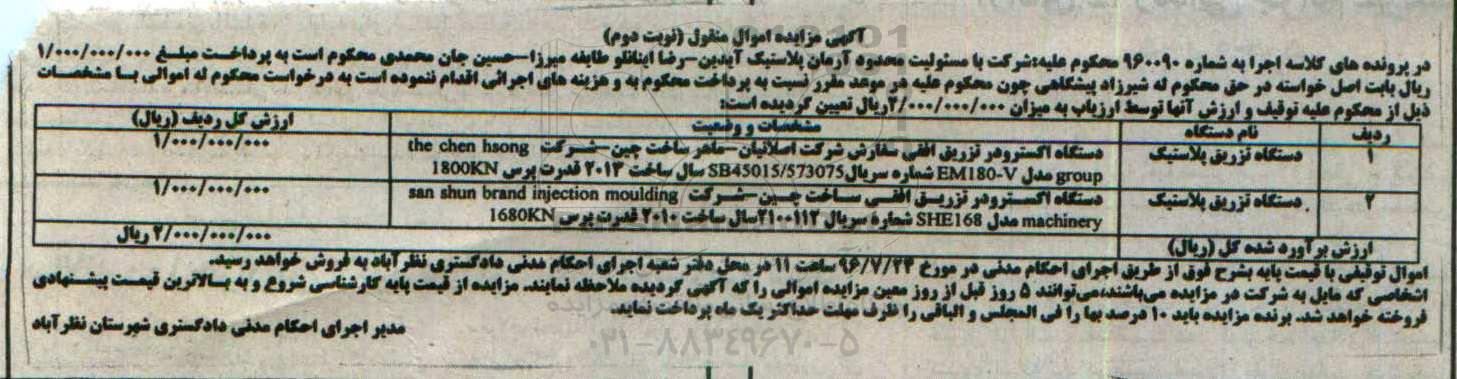 آگهی مزایده اموال منقول (نوبت دوم)
در پرونده های کلاسه اجرا به شماره ۹۶۰۰۹۰ محکوم علیه:شرکت با مسئولیت محدود آرمان پلاستیک آیدین-رضا اینانلو طایفه میرزا-حسین جان محمدی محکوم است به پرداخت مبلغ ۱/۰۰۰/۰۰۰/۰۰۰
ریال بابت اصل خواسته در حق محکوم له شیرزاد پیشگاهی چون محکوم علیه در موعد مقرر نسبت به پرداخت محکوم به و هزینه های اجرائی اقدام ننموده است به درخواست محکوم له اموالی با مشخصات
ذیل از محکوم علیه توقیف و ارزش آنها توسط ارزیاب به میزان ۲/۰۰۰/۰۰۰/۰۰۰ریال تعیین گردیده است:
ردیف نام دستگاه مشخصات و وضعیت ارزش کل ردیف (ریال)
۱ دستگاه تزریق پلاستیک دستگاه اکسترودر تزریق افقی سفارش شرکت اصلانیان-ماهر ساخت چین-شرکت the chen hsong ۱/۰۰۰/۰۰۰/۰۰۰
group مدل EM180-V شماره سریال SB45015/573075 سال ساخت ۲۰۱۳ قدرت پرس 1800KN
۲ دستگاه تزریق پلاستیک دستگاه اکسترودر تزریق افقی ساخت چین-شرکت san shun brand injection moulding ۱/۰۰۰/۰۰۰/۰۰۰
machinery مدل SHE168 شماره سریال ۲۱۰۰۱۱۲سال ساخت ۲۰۱۰ قدرت پرس 1680KN
ارزش برآورد شده کل (ریال) ۲/۰۰۰/۰۰۰/۰۰۰ ریال
اموال توقیفی با قیمت پایه بشرح فوق از طریق اجرای احکام مدنی در مورخ ۹۶/۷/۲۴ ساعت ۱۱ در محل دفتر شعبه اجرای احکام مدنی دادگستری نظرآباد به فروش خواهد رسید.
اشخاصی که مایل به شرکت در مزایده می‌باشند،می‌توانند ۵ روز قبل از روز معین مزایده اموالی را که آگهی گردیده ملاحظه نمایند. مزایده از قیمت پایه کارشناسی شروع و به بالاترین قیمت پیشنهادی
فروخته خواهد شد. برنده مزایده باید ۱۰ درصد بها را فی المجلس و الباقی را ظرف مهلت حداکثر یک ماه پرداخت نماید.
مدیر اجرای احکام مدنی دادگستری شهرستان نظرآباد
۰۲۱-۸۸۳۴۹۶۷۰-۵